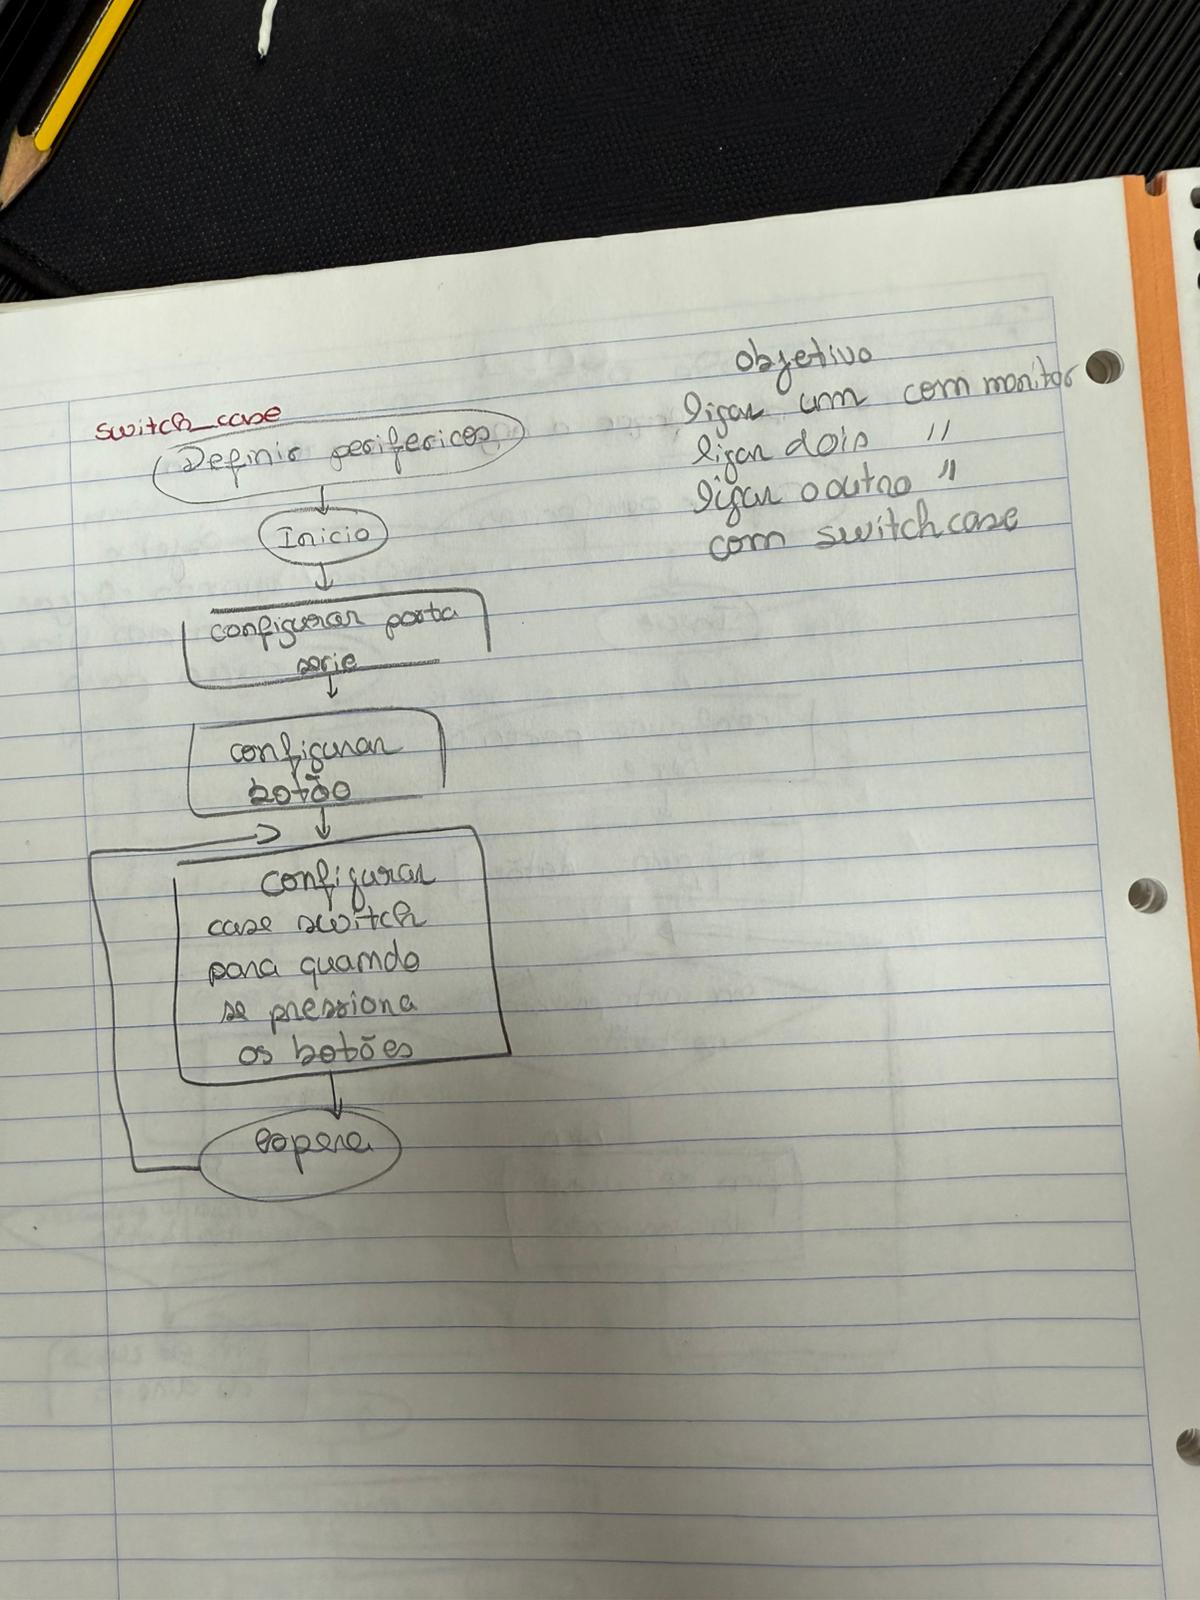 switch_case
Definir perifericos
Inicio
configurar porta
serie
configurar
botão
configurar
case switch
para quando
se pressiona
os botões
espera
objetivo
ligar um com monitor
ligar dois "
ligar o outro "
com switch case